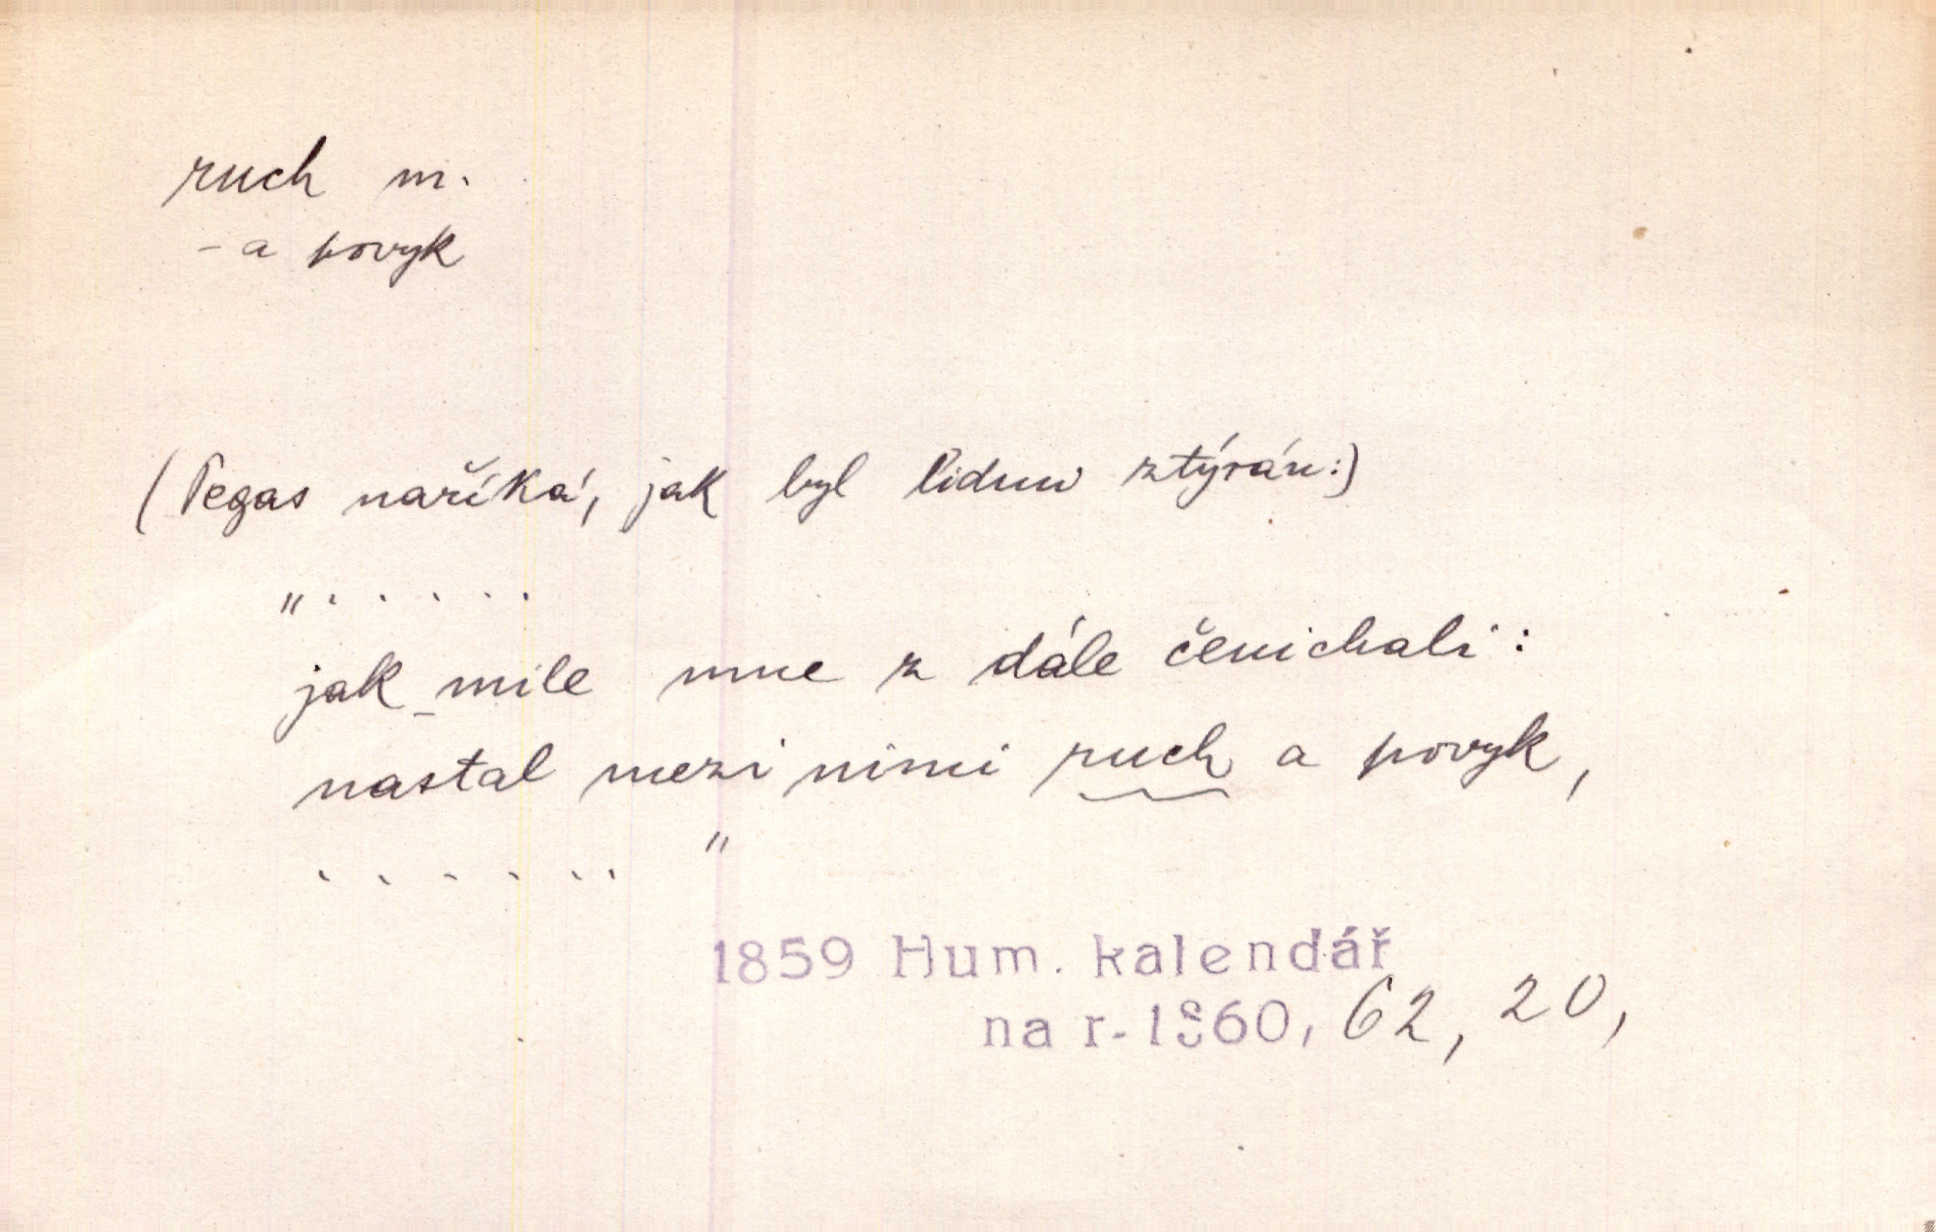 ruch m.
- a povyk
(Pegas naříká, jak byl lidmi ztýrán:)
"......
jak mile mne z dále čenichali:
nastal mezi nimi ruch a povyk,
...... "
1859 Hum. kalendář
na r. 1860, 62, 20,